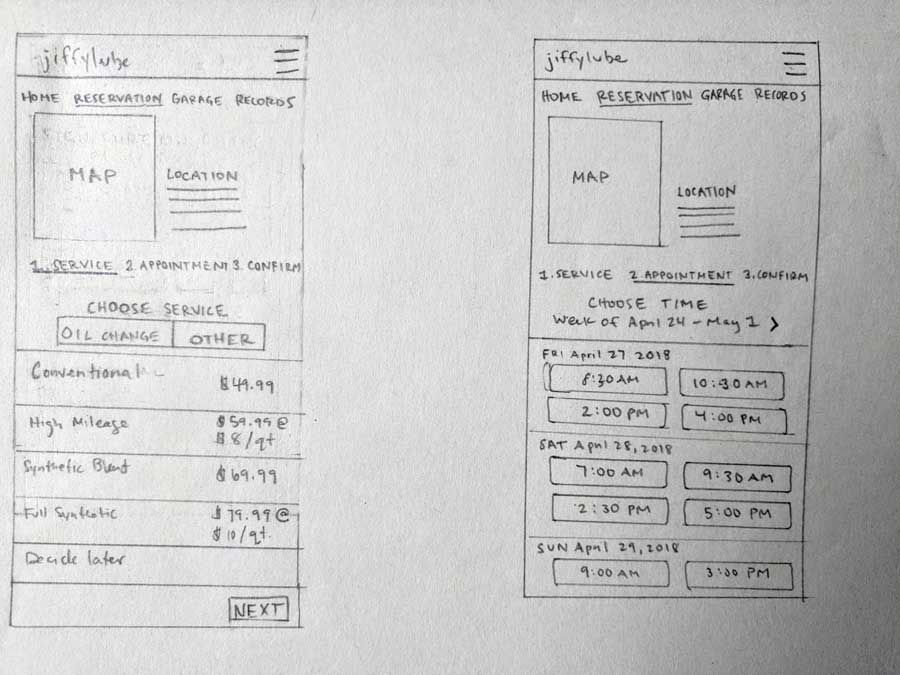 jiffylube
HOME RESERVATION GARAGE RECORDS
MAP
LOCATION
1. SERVICE 2 APPOINTMENT 3. CONFIRM
CHOOSE SERVICE
OIL CHANGE OTHER
Conventional $49.99
High Mileage $59.99 @
$8/qt
Synthetic Blend $69.99
Full Synthetic $79.99 @
$10/qt.
Decide later
NEXT
jiffylube
HOME RESERVATION GARAGE RECORDS
MAP
LOCATION
1. SERVICE 2 APPOINTMENT 3. CONFIRM
CHOOSE TIME
Week of April 24 - May 1 >
FRI April 27 2018
8:30 AM 10:30 AM
2:00 PM 4:00 PM
SAT April 28, 2018
7:00 AM 9:30 AM
2:30 PM 5:00 PM
SUN April 29, 2018
9:00 AM 3:00 PM